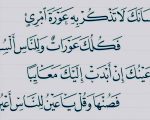 سانك لا تذكر به عورة امرئ
فكلك عورات وللناس ألس
عينك إن أبدت إليك معايبا
فصنها وقل يا عين للناس أعي